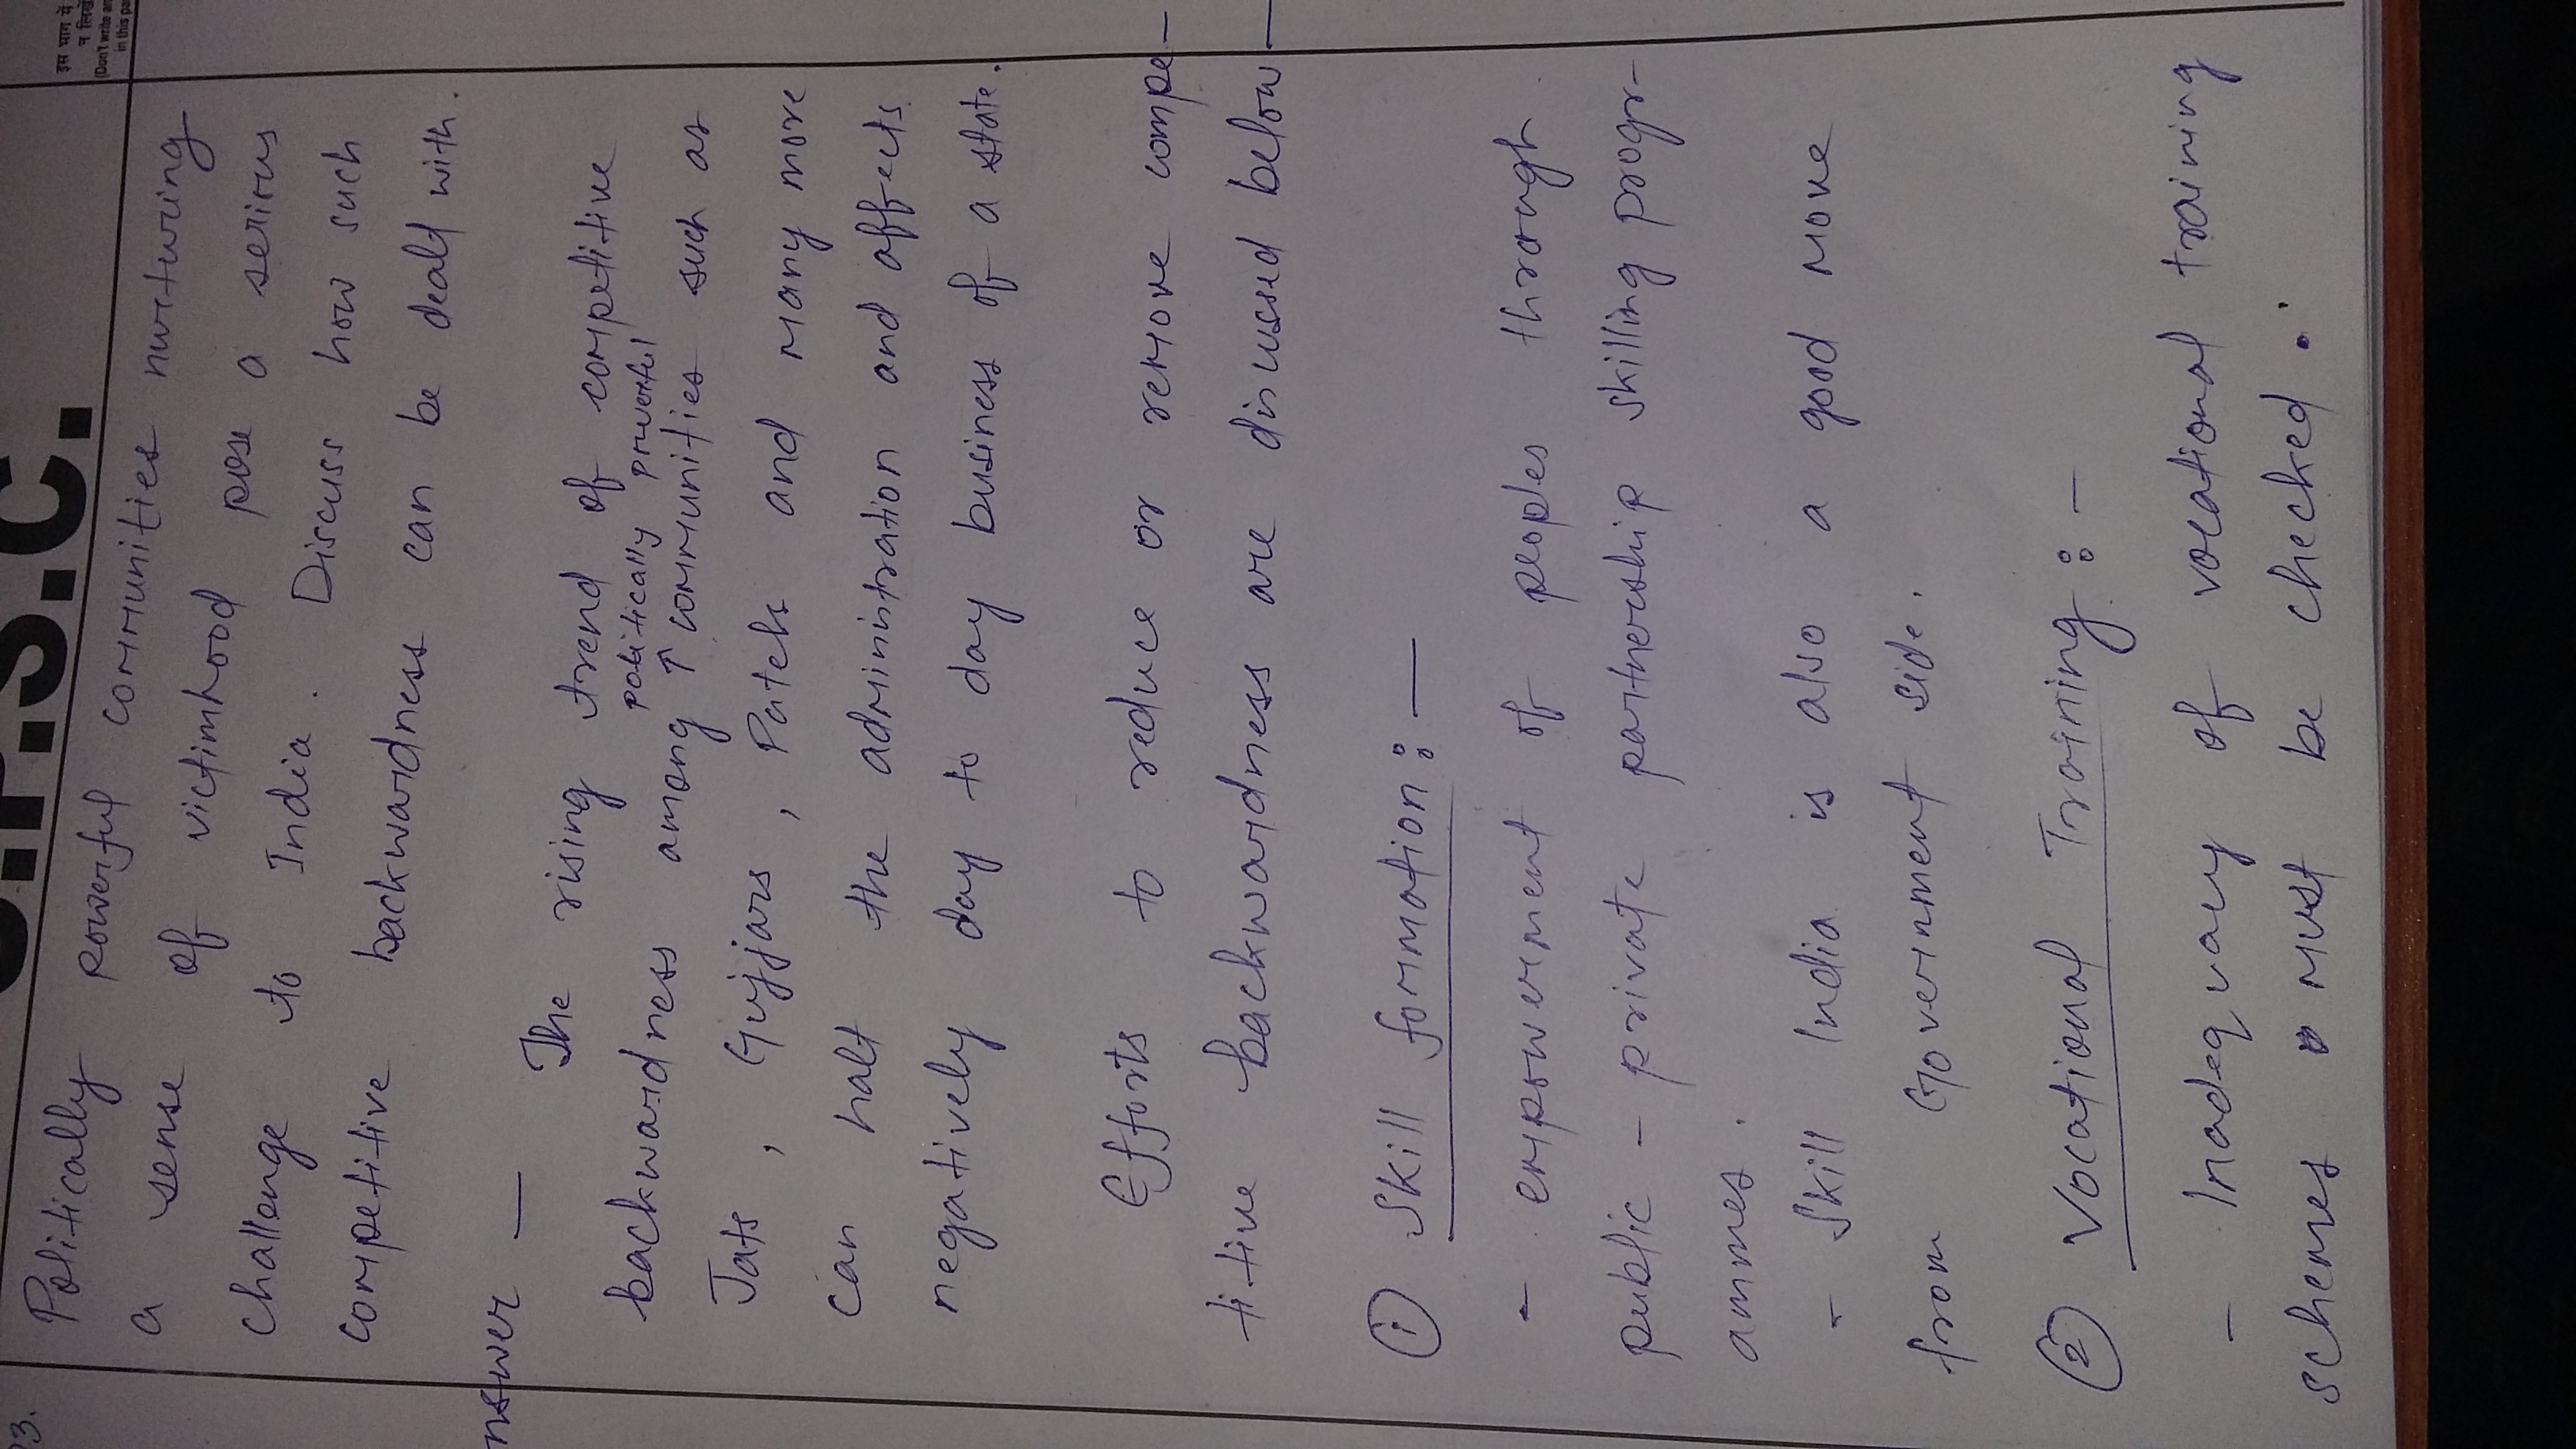 इस भाग में
न लिखें
(Don't write
in this
Politically powerful communities nurturing
a sense of victimhood pose a serious
challenge to India. Discuss how such
competitive backwardness can be dealt with.
nswer —
The rising trend of competitive
politically powerful
backwardness among ↑ communities such as
Jats, Gujjars, Patels and many more
can halt the administration and affects
negatively day to day business of a state.
Efforts to reduce or remove compe-
titive backwardness are discussed below —
① Skill formation: —
- empowerment of peoples through
public - private partnership skilling progr-
ammes.
- Skill India is also a good move
from Government side.
② Vocational Training: -
- Inadequacy of vocational training
schemes must be checked.